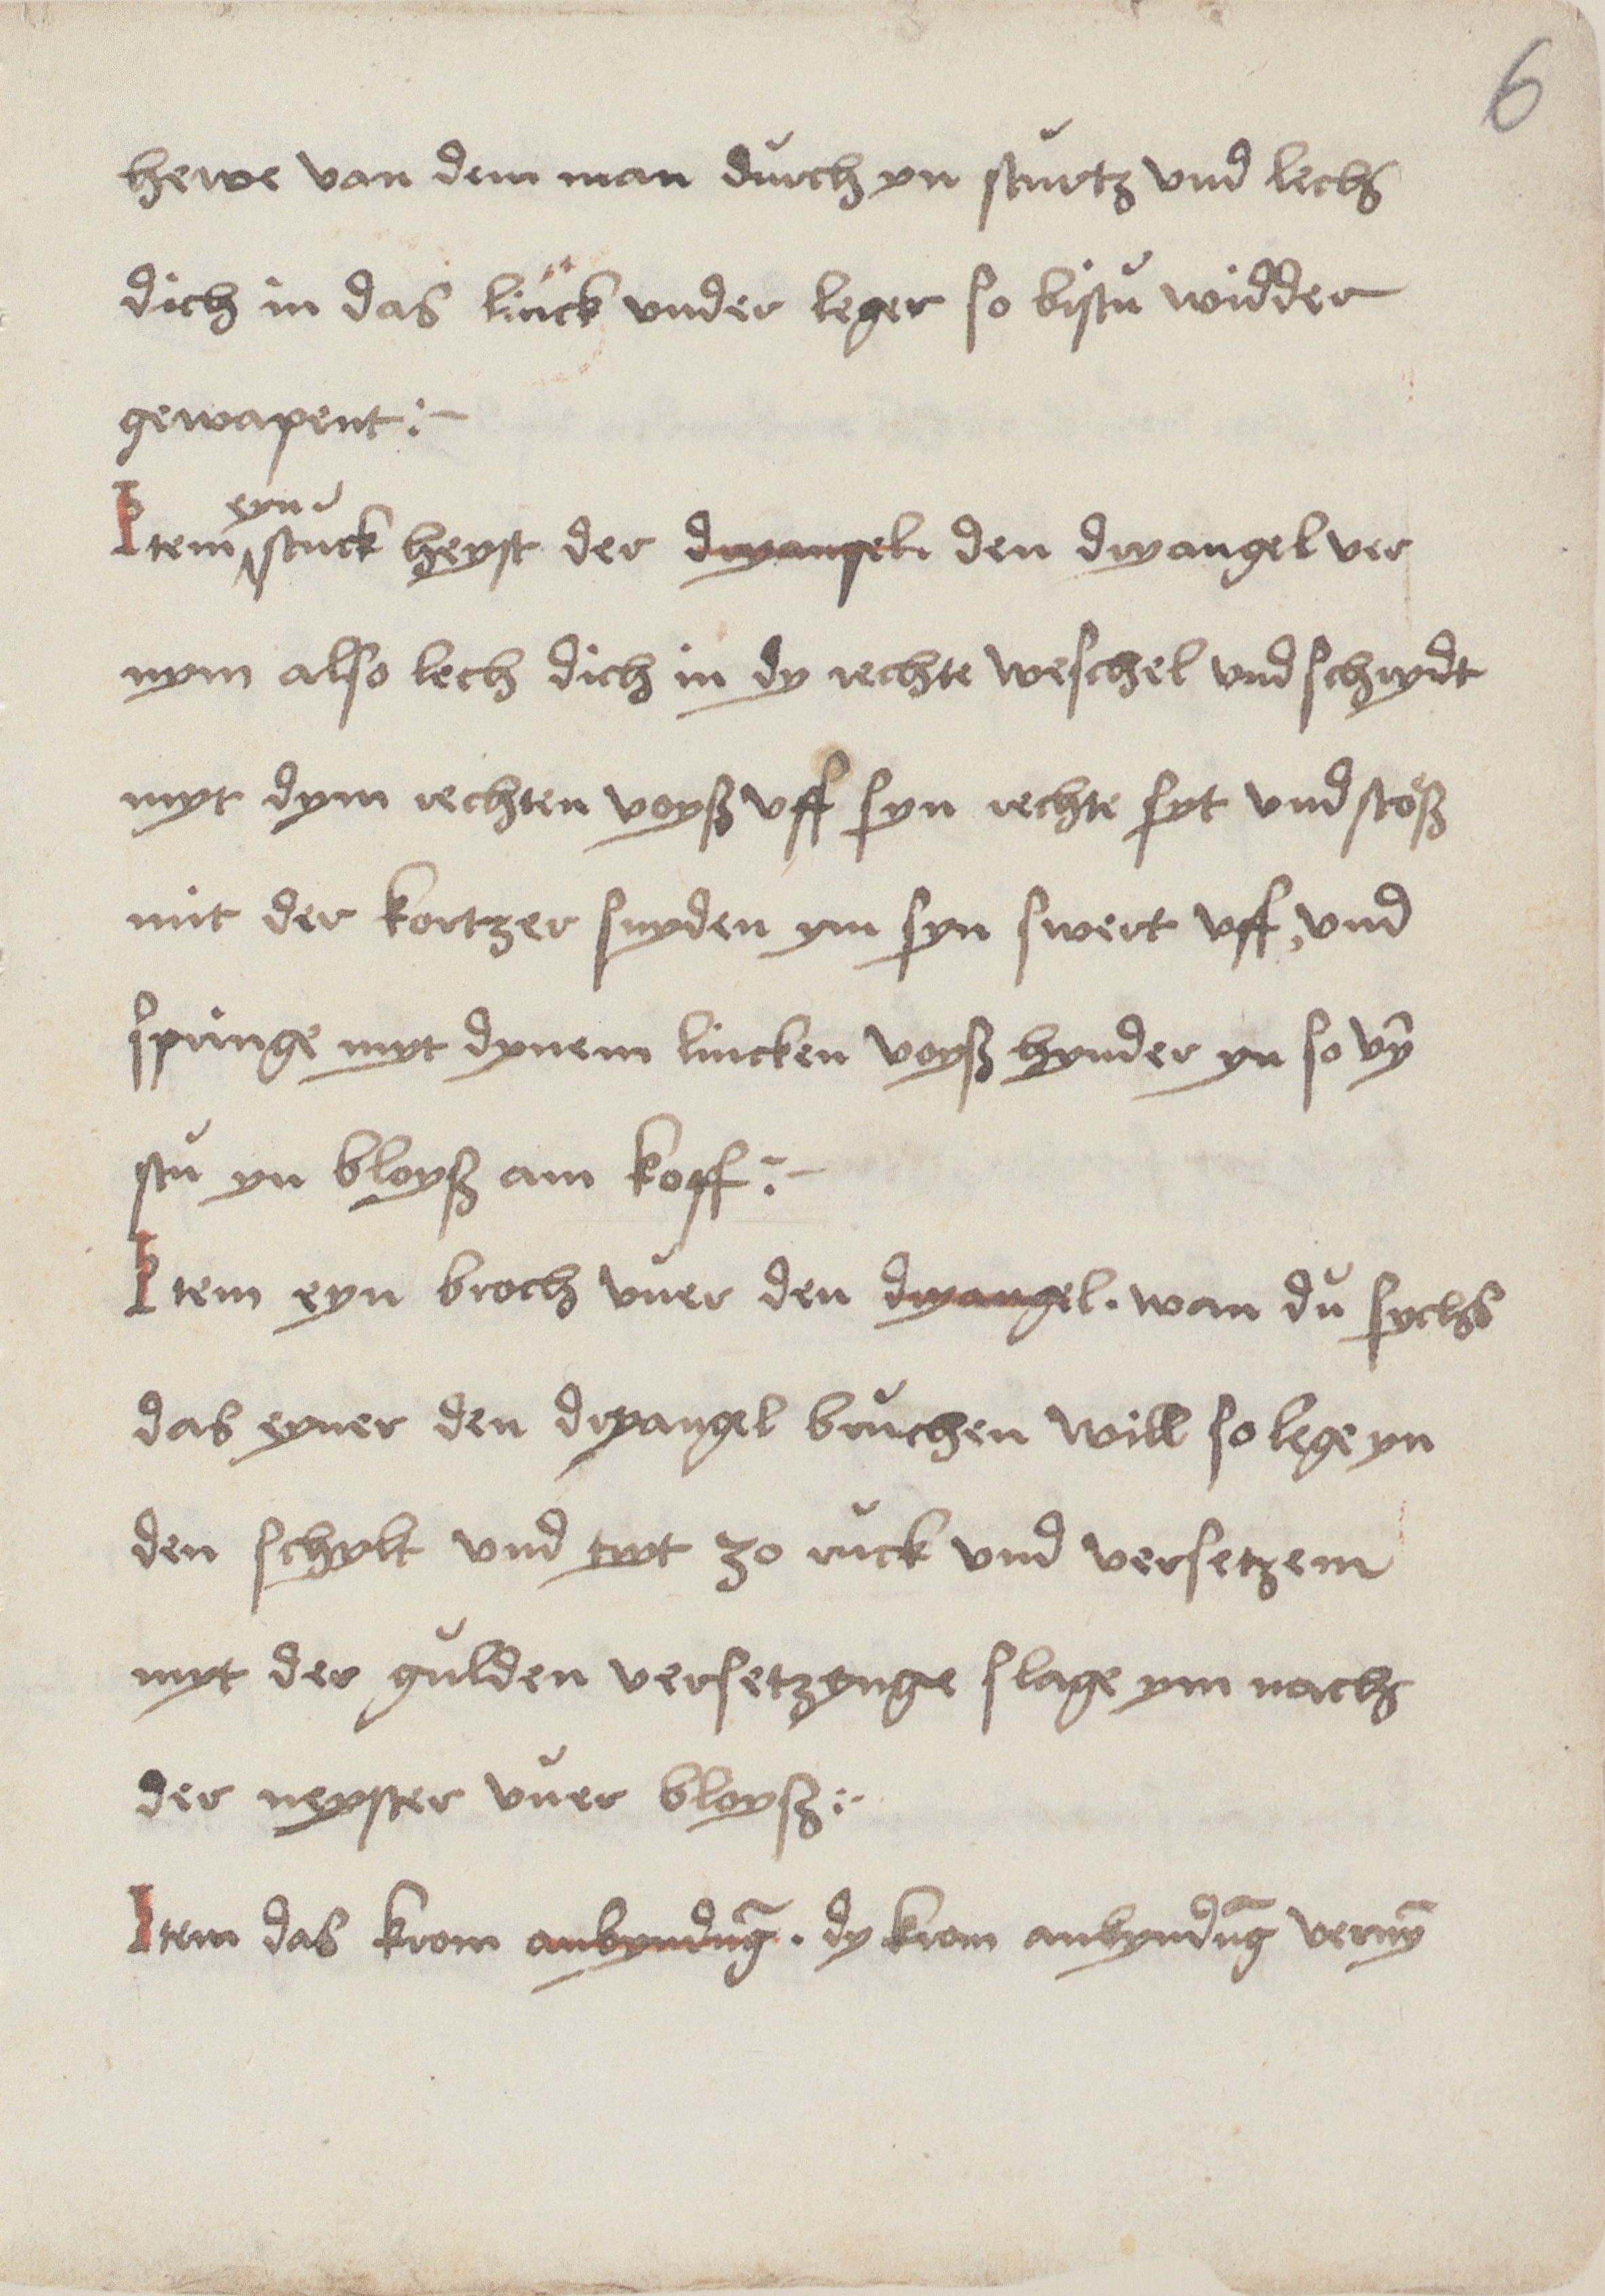 6
hewe van dem man durch yn sturtz vnd lech
dich in das linck vnder leger so bistu widder
gewapent :-
eyn
Item stuck heyst der dryangel. den dryangel ver
nym also lech dich in dy rechte weschel vnd schrydt
myt dym rechten voyß vff syn rechte syt vnd stoß
mit der kortzer snyden ym syn swert vff, vnd
springe myt dynem lincken voyß hynder yn so vȳ
stu yn bloyß am kopff :-
Item eyn broch vuer den dryangel. wan du sychs
das eyner den dryangel bruchen will so lege yn
den schylt vnd tryt zo ruck vnd versetzem
myt der gulden versetzynge slage ym nach
der neyster vuer bloyß :-
Item das krom anbyndūg. dy krom anbyndūg vernȳ